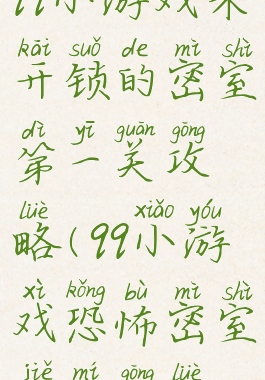 99小游戏未
kāi suǒ de mì shì
开锁的密室
dì yī guān gōng
第一关攻
lüè xiǎo yóu
略(99小游
xì kǒng bù mì shì
戏恐怖密室
jiě mí gōng lüè